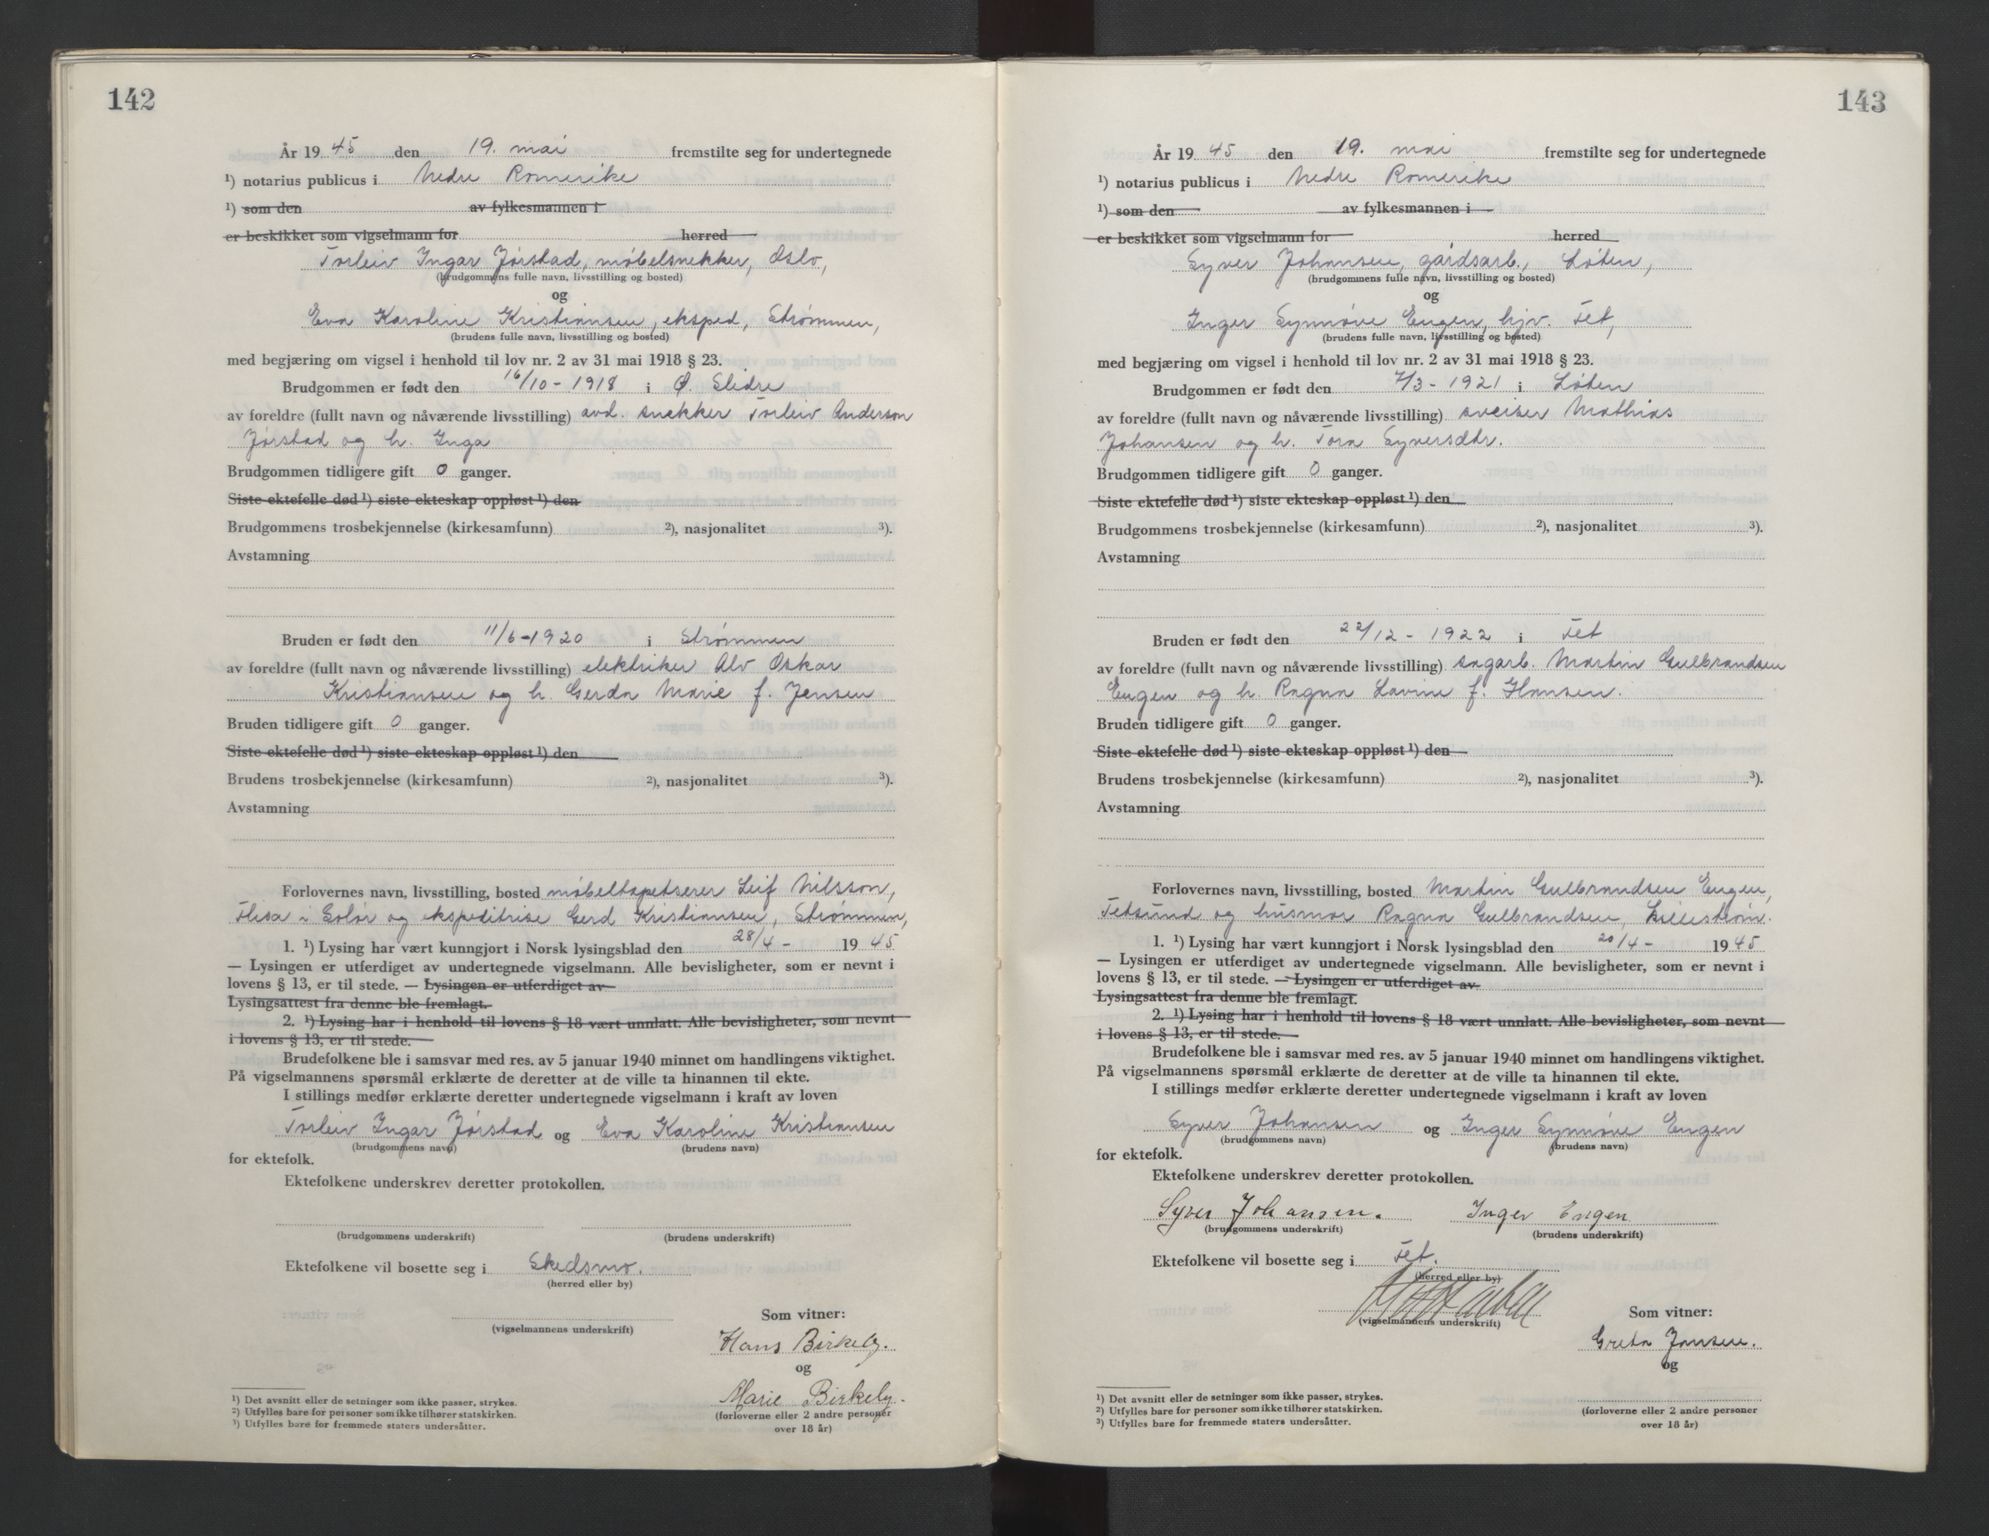 142
År 19 45 den 19. mai fremstilte seg for undertegnede
¹) notarius publicus i Nedre Romerike
¹) som den av fylkesmannen i
er beskikket som vigselmann for herred
Torleiv Ingar Jørstad, møbelsnekker, Oslo,
(brudgommens fulle navn, livsstilling og bosted)
og
Eva Karoline Kristiansen, eksped, Strømmen,
(brudens fulle navn, livsstilling og bosted)
med begjæring om vigsel i henhold til lov nr. 2 av 31 mai 1918 § 23.
Brudgommen er født den 16/10 - 1918 i Ø. Slidre
av foreldre (fullt navn og nåværende livsstilling) avd. snekker Torleiv Anderson
Jørstad og h. Inga
Brudgommen tidligere gift 0 ganger.
Siste ektefelle død ¹) siste ekteskap oppløst ¹) den
Brudgommens trosbekjennelse (kirkesamfunn) ²), nasjonalitet ³).
Avstamning
Bruden er født den 11/6 - 1920 i Strømmen
av foreldre (fullt navn og nåværende livsstilling) elektriker Alv Oskar
Kristiansen og h. Gerda Marie f. Jensen
Bruden tidligere gift 0 ganger.
Siste ektefelle død ¹) siste ekteskap oppløst ¹) den
Brudens trosbekjennelse (kirkesamfunn) ²), nasjonalitet ³).
Avstamning
Forlovernes navn, livsstilling, bosted møbeltapetserer Leif Nilsson,
Flisa i Solør og ekspeditrise Gerd Kristiansen, Strømmen,
1. ¹) Lysing har vært kunngjort i Norsk lysingsblad den 28/4 - 19 45
— Lysingen er utferdiget av undertegnede vigselmann. Alle bevisligheter, som er nevnt i
lovens § 13, er til stede. — Lysingen er utferdiget av
Lysingsattest fra denne ble fremlagt.
2. ¹) Lysing har i henhold til lovens § 18 vært unnlatt. Alle bevisligheter, som nevnt
i lovens § 13, er til stede.
Brudefolkene ble i samsvar med res. av 5 januar 1940 minnet om handlingens viktighet.
På vigselmannens spørsmål erklærte de deretter at de ville ta hinannen til ekte.
I stillings medfør erklærte deretter undertegnede vigselmann i kraft av loven
Torleiv Ingar Jørstad og Eva Karoline Kristiansen
(brudgommens navn) (brudens navn)
for ektefolk.
Ektefolkene underskrev deretter protokollen.
(brudgommens underskrift) (brudens underskrift)
Ektefolkene vil bosette seg i Skedsmo.
(herred eller by)
Som vitner:
(vigselmannens underskrift)
Hans Birkely.
og
Marie Birkely.
(forloverne eller 2 andre personer
over 18 år)
¹) Det avsnitt eller de setninger som ikke passer, strykes.
²) Utfylles bare for personer som ikke tilhører statskirken.
³) Utfylles bare for fremmede staters undersåtter.
143
År 19 45 den 19. mai fremstilte seg for undertegnede
¹) notarius publicus i Nedre Romerike
¹) som den av fylkesmannen i
er beskikket som vigselmann for herred
Syver Johansen, gårdsarb., Løten,
(brudgommens fulle navn, livsstilling og bosted)
og
Inger Synnøve Engen, hjv. Fet,
(brudens fulle navn, livsstilling og bosted)
med begjæring om vigsel i henhold til lov nr. 2 av 31 mai 1918 § 23.
Brudgommen er født den 7/3 - 1921 i Løten
av foreldre (fullt navn og nåværende livsstilling) sveiser Mathias
Johansen og h. Tora Syversdtr.
Brudgommen tidligere gift 0 ganger.
Siste ektefelle død ¹) siste ekteskap oppløst ¹) den
Brudgommens trosbekjennelse (kirkesamfunn) ²), nasjonalitet ³).
Avstamning
Bruden er født den 22/12 - 1922 i Fet
av foreldre (fullt navn og nåværende livsstilling) sagarb. Martin Gulbrandsen
Engen og h. Ragna Lavine f. Hansen.
Bruden tidligere gift 0 ganger.
Siste ektefelle død ¹) siste ekteskap oppløst ¹) den
Brudens trosbekjennelse (kirkesamfunn) ²), nasjonalitet ³).
Avstamning
Forlovernes navn, livsstilling, bosted Martin Gulbrandsen Engen,
Fetsund og husmor Ragna Gulbrandsen, Lillestrøm.
1. ¹) Lysing har vært kunngjort i Norsk lysingsblad den 20/4 - 19 45
— Lysingen er utferdiget av undertegnede vigselmann. Alle bevisligheter, som er nevnt i
lovens § 13, er til stede. — Lysingen er utferdiget av
Lysingsattest fra denne ble fremlagt.
2. ¹) Lysing har i henhold til lovens § 18 vært unnlatt. Alle bevisligheter, som nevnt
i lovens § 13, er til stede.
Brudefolkene ble i samsvar med res. av 5 januar 1940 minnet om handlingens viktighet.
På vigselmannens spørsmål erklærte de deretter at de ville ta hinannen til ekte.
I stillings medfør erklærte deretter undertegnede vigselmann i kraft av loven
Syver Johansen og Inger Synnøve Engen
(brudgommens navn) (brudens navn)
for ektefolk.
Ektefolkene underskrev deretter protokollen.
Syver Johansen. Inger Engen
(brudgommens underskrift) (brudens underskrift)
Ektefolkene vil bosette seg i Fet.
(herred eller by)
Som vitner:
(vigselmannens underskrift)
Greta Jansen.
og
(forloverne eller 2 andre personer
over 18 år)
¹) Det avsnitt eller de setninger som ikke passer, strykes.
²) Utfylles bare for personer som ikke tilhører statskirken.
³) Utfylles bare for fremmede staters undersåtter.